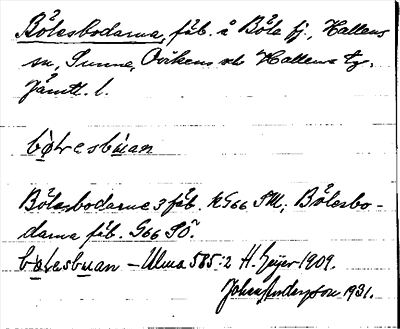 Bölesbodarna, fäb. å Böle fj., Hallens
sn, Sunne, Oviken och Hallens tg.
Jämtl. l.
bølesbuan
Bölesbodarne 3 fäb. KG66 SM; Bölesbo-
darna fäb. G66 SÖ.
bølesbuan – Ulma 585:2 H. Geijer 1909.
Johan Anderson 1931.